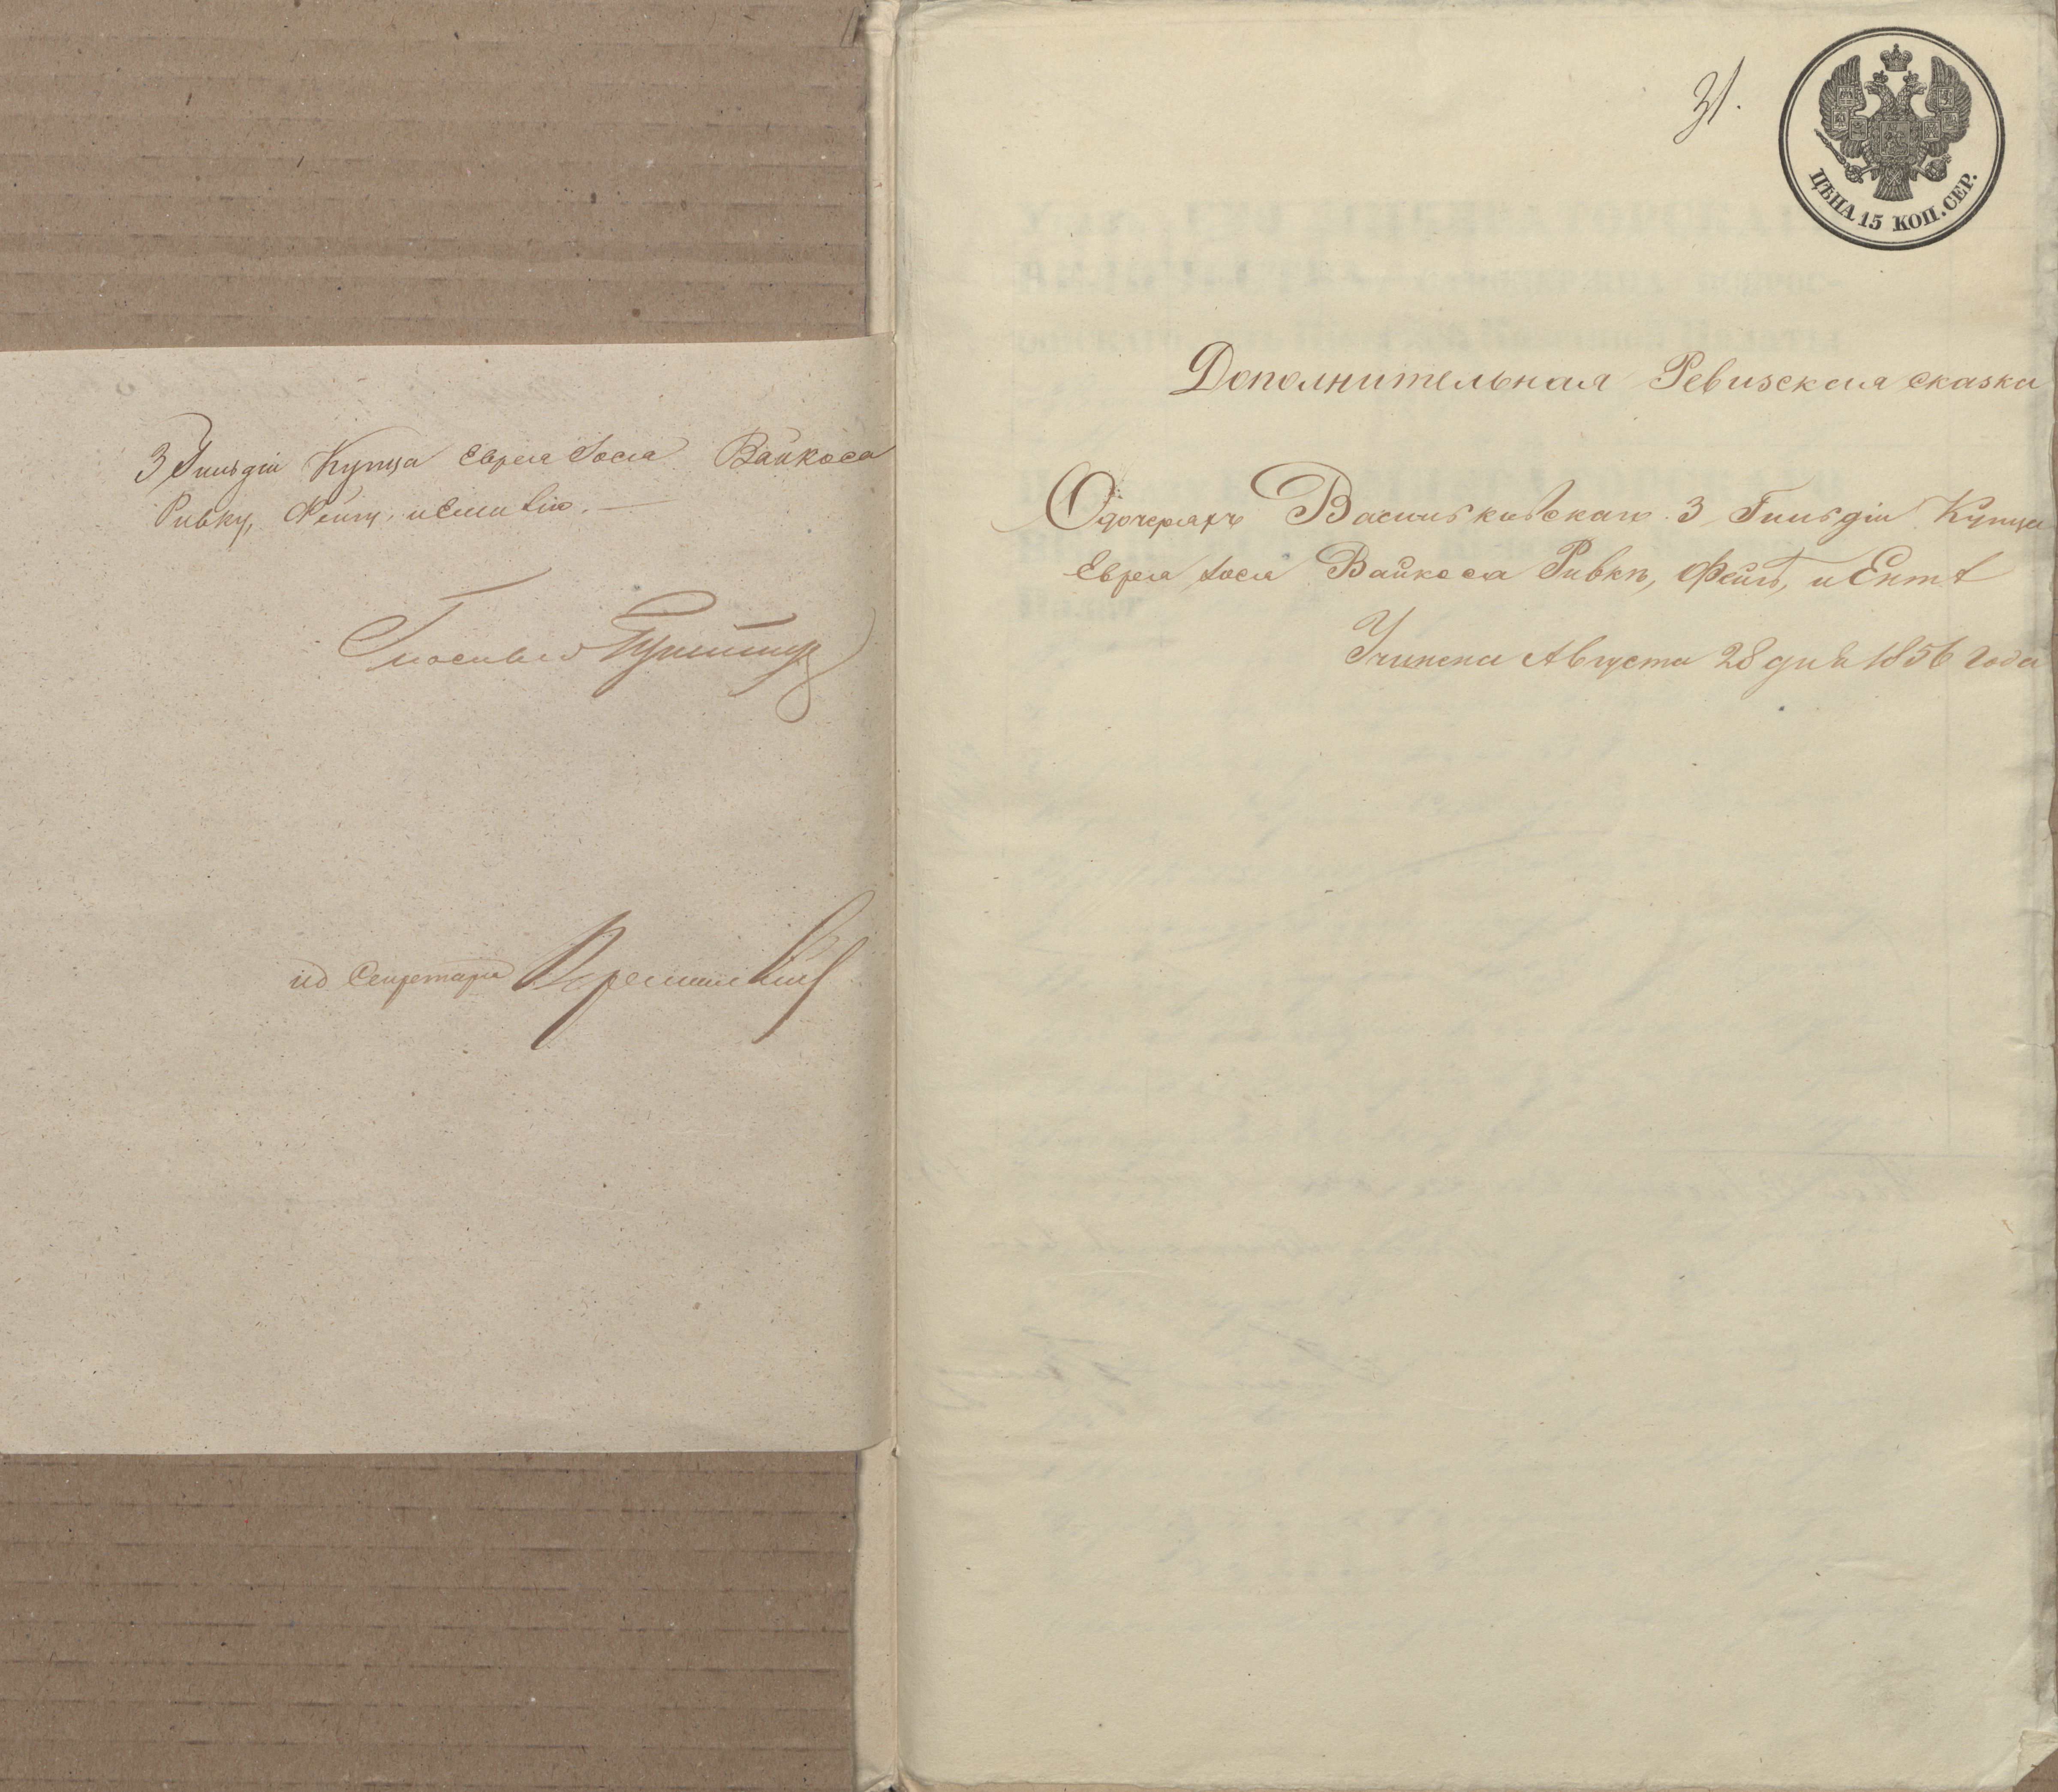 3 Гильдіи Купца Еврея Іося Вайкоса
Ривку, Фейгу, и
ид Секретаря
31.
ЦѢНА 15 КОП. СЕР.
Дополнительная Ревизская сказка
О дочеряхъ Васильковскаго 3 Гильдіи Купца
Еврея Іося Вайкоса Ривкѣ, Фейгѣ, и Ентѣ
Учинена Августа 28 дня 1856 года